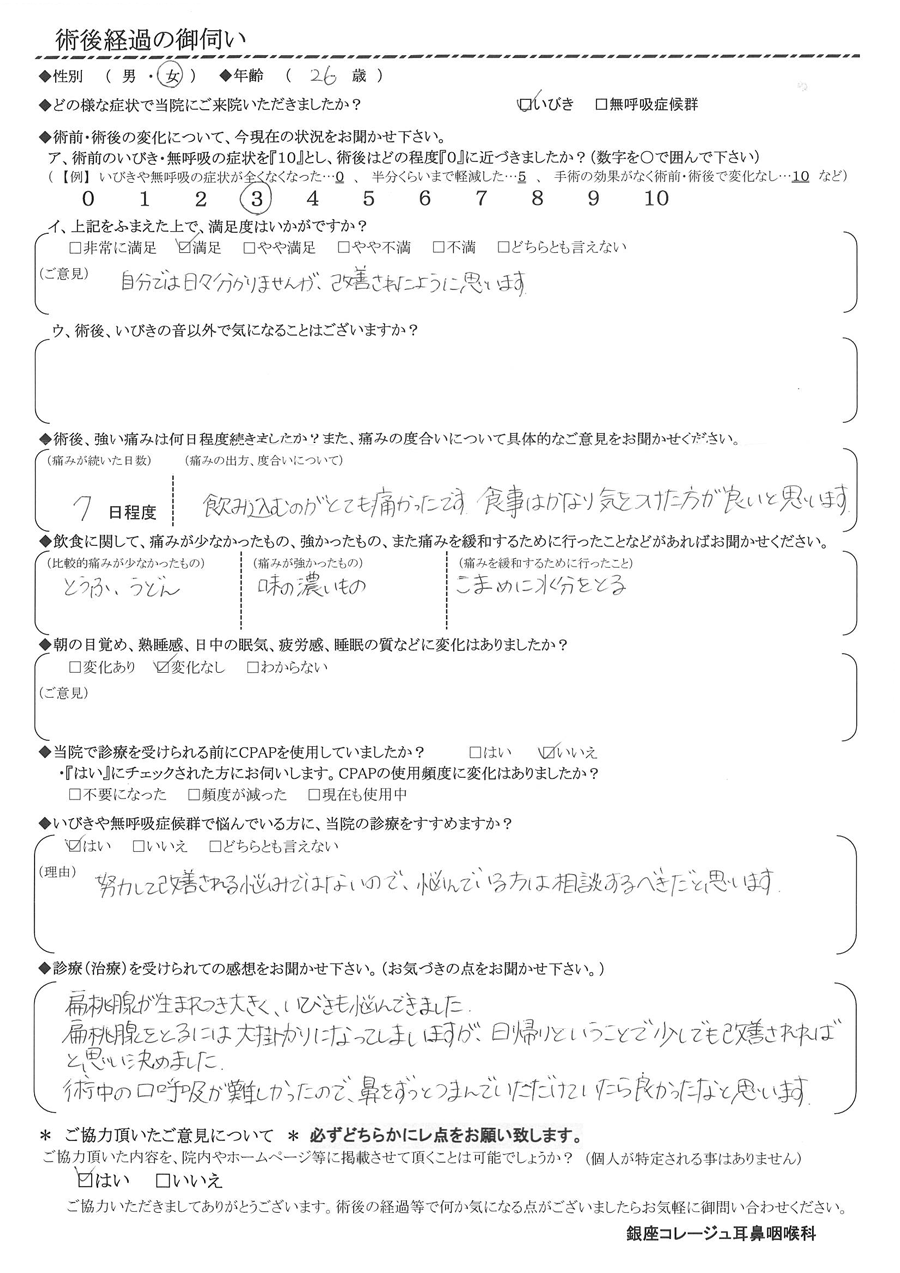 術後経過の御伺い
◆性別 （ 男 ・ 女 ） ◆年齢 （ 26 歳 ）
◆どの様な症状で当院にご来院いただきましたか？ ☑いびき □無呼吸症候群
◆術前・術後の変化について、今現在の状況をお聞かせ下さい。
ア、術前のいびき・無呼吸の症状を『10』とし、術後はどの程度『0』に近づきましたか？（数字を〇で囲んで下さい）
（ 【例】 いびきや無呼吸の症状が全くなくなった…0 、 半分くらいまで軽減した…5 、 手術の効果がなく術前・術後で変化なし…10 など）
0 1 2 3 4 5 6 7 8 9 10
イ、上記をふまえた上で、満足度はいかがですか？
□非常に満足 ☑満足 □やや満足 □やや不満 □不満 □どちらとも言えない
（ご意見） 自分では日々分かりませんが、改善されたように思います
ウ、術後、いびきの音以外で気になることはございますか？
◆術後、強い痛みは何日程度続きましたか？また、痛みの度合いについて具体的なご意見をお聞かせください。
（痛みが続いた日数） （痛みの出方、度合いについて）
7 日程度 飲み込むのがとても痛かったです 食事はかなり気をつけた方が良いと思います
◆飲食に関して、痛みが少なかったもの、強かったもの、また痛みを緩和するために行ったことなどがあればお聞かせください。
（比較的痛みが少なかったもの） （痛みが強かったもの） （痛みを緩和するために行ったこと）
とうふ、うどん 味の濃いもの こまめに水分をとる
◆朝の目覚め、熟睡感、日中の眠気、疲労感、睡眠の質などに変化はありましたか？
□変化あり ☑変化なし □わからない
（ご意見）
◆当院で診療を受けられる前にCPAPを使用していましたか？ □はい ☑いいえ
・『はい』にチェックされた方にお伺いします。CPAPの使用頻度に変化はありましたか？
□不要になった □頻度が減った □現在も使用中
◆いびきや無呼吸症候群で悩んでいる方に、当院の診療をすすめますか？
☑はい □いいえ □どちらとも言えない
（理由） 努力して改善される悩みではないので、悩んでいる方は相談するべきだと思います.
◆診療（治療）を受けられての感想をお聞かせ下さい。（お気づきの点をお聞かせ下さい。）
扁桃腺が生まれつき大きく、いびきも悩んできました.
扁桃腺をとるには大掛かりになってしまいますが、日帰りということで少しでも改善されれば
と思い決めました.
術中の口呼吸が難しかったので、鼻をずっとつまんでいただけていたら良かったなと思います.
＊ ご協力頂いたご意見について ＊ 必ずどちらかにレ点をお願い致します。
ご協力頂いた内容を、院内やホームページ等に掲載させて頂くことは可能でしょうか？ （個人が特定される事はありません）
☑はい □いいえ
ご協力いただきましてありがとうございます。術後の経過等で何か気になる点がございましたらお気軽に御問い合わせください。
銀座コレージュ耳鼻咽喉科